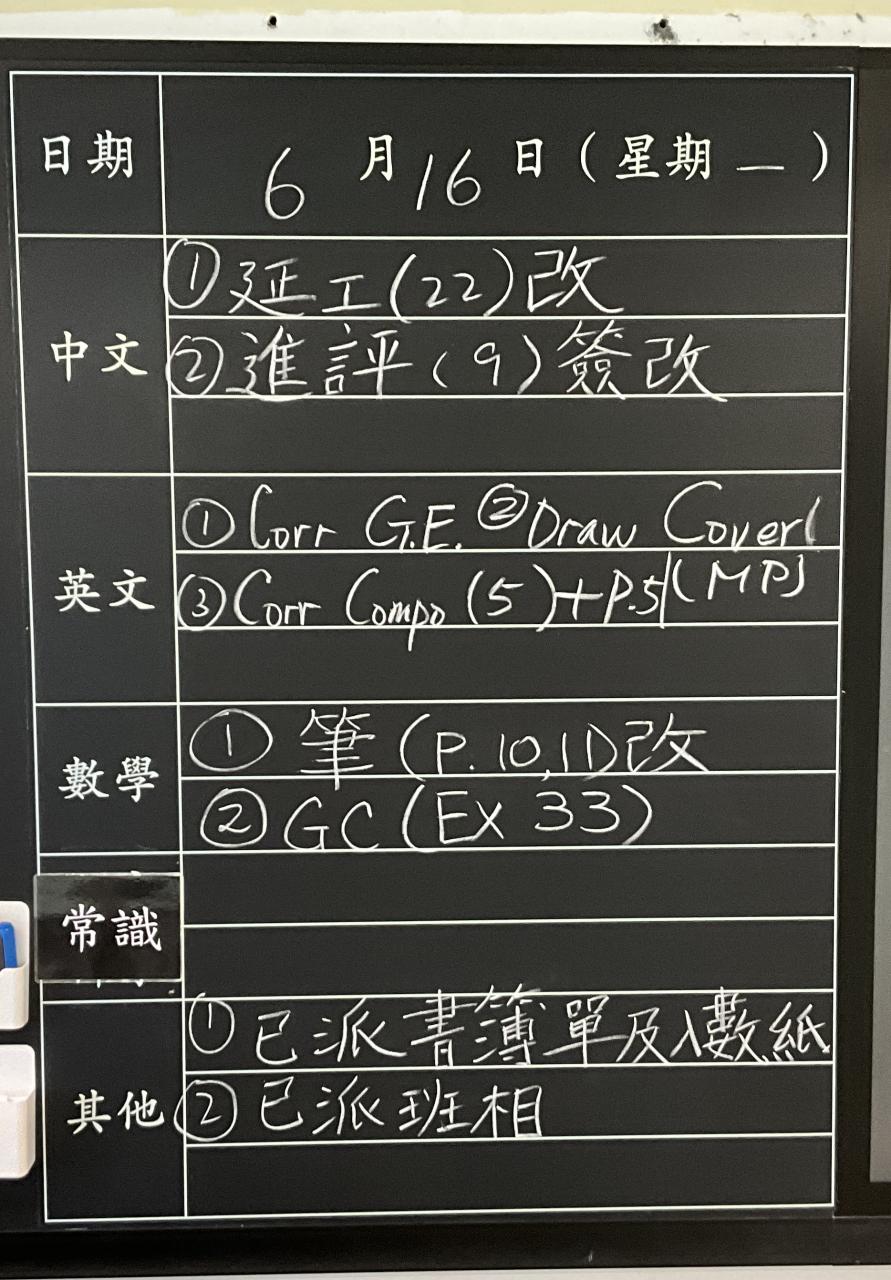 日期 6月16日(星期一)
中文 ①延工(22)改
②進評(9)簽改
英文 ①Corr G.E. ②Draw Cover(
③Corr Compo (5)+P.5 (MP)
數學 ①筆(P.10,11)改
②GC(Ex 33)
常識
其他 ①已派書簿單及入數紙
②已派班相